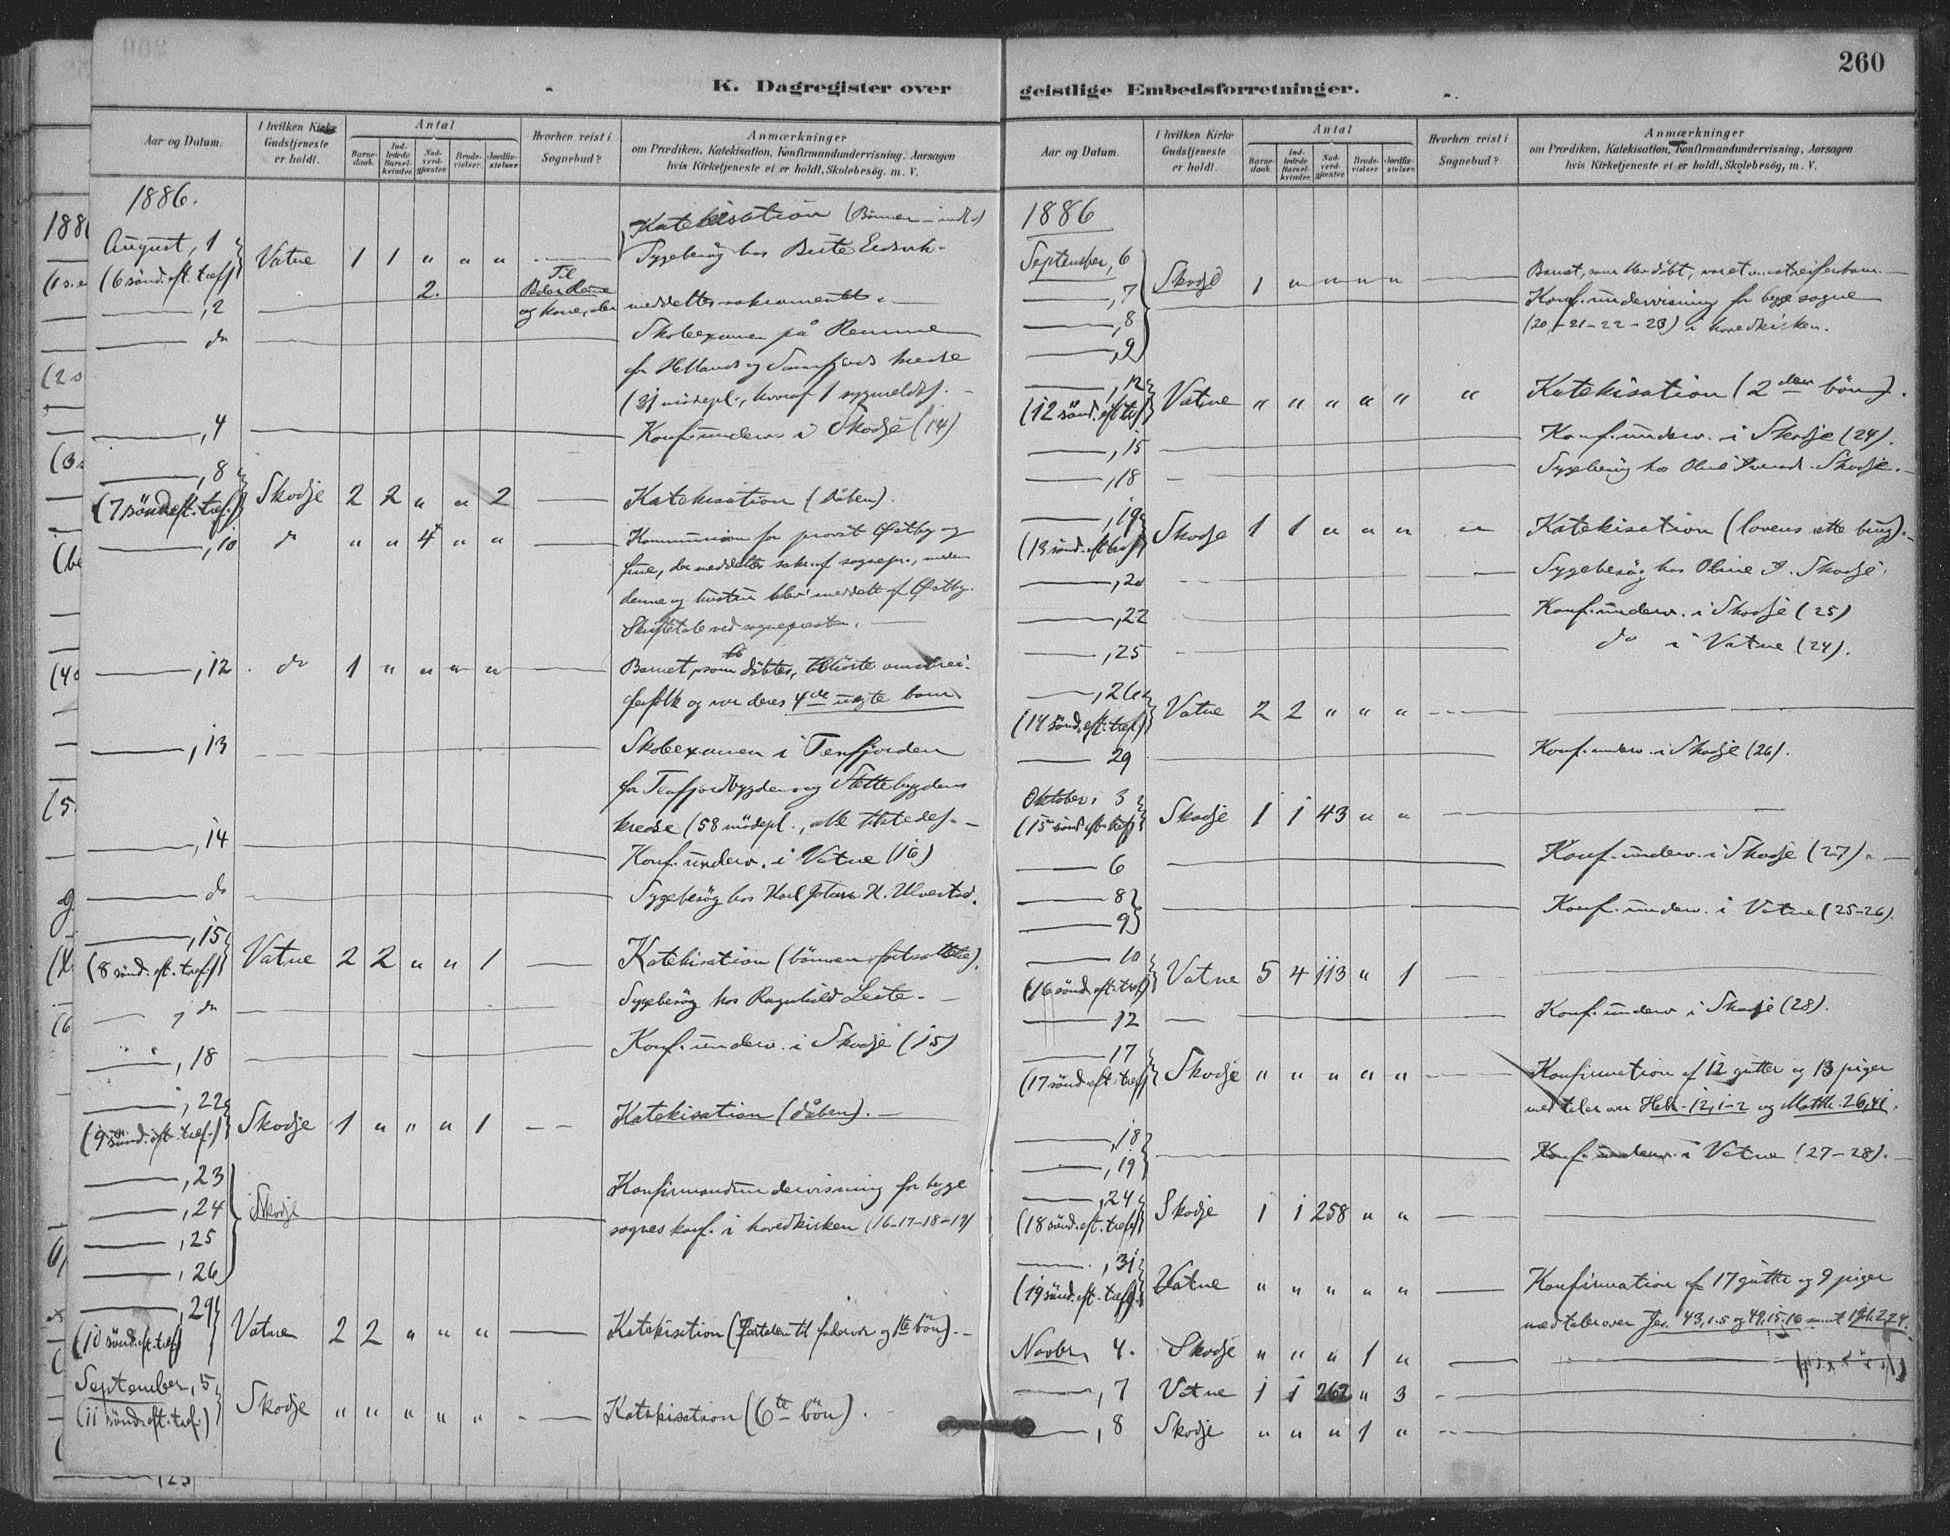 260
K. Dagregister over
Aar og Datum.
I hvilken Kirke Gudstjeneste er holdt.
Antal
Barnedaab.
Indledede Barselkvinder.
Nadverdgjæster.
Brudevielser.
Jordfæstelser.
Hvorhen reist i Sognebud?
Anmærkninger
om Prædiken, Katekisation, Konfirmandundervisning, Aarsagen
hvis Kirketjeneste ei er holdt, Skolebesög, m. V.
1886.
August, 1 Vatne 1 1 " " " Katekisation (Bönnen - indl.)
(6 sönd. eft. tref.) Sygebesög hos
, 2 2. Til og kone, der meddeltes sakramentet.
do Skoleexamen på Remme
for Hellands og kredse
(31 mödepl., hvoraf 1 sygmeldt).
, 4 Konf.underv. i Skodje (14)
, 8 Skodje 2 2 " " 2 Katekisation (Dåben).
(7 sönd. eft. tref.)
, 10 do " " 4 " " Kommunion for provst Östby og
frue, der meddeltes sakr. af sognepr., medens
denne og hustru blev meddelt af Östby.
Skriftetale ved sognepresten.
, 12 do 1 " " " " Barnet, som döbtes, tilhörte omstrei-
ferfolk og var deres 4de uægte barn
, 13 Skoleexamen i Tenfjorden
for Tenfjordbygdens og Slettebygdens
kredse (58 mödepl., alle tilstede).
, 14 Konf.underv. i Vatne (16)
do Sygebesög hos Karl Johan K. Ulvestad.
, 15 Vatne 2 2 " " 1 Katekisation (bönnen fortsattes).
(8 sönd. eft. tref.)
, do Sygebesög hos Ragnhild Leite.
, 18 Konf.underv. i Skodje (15)
, 22 Skodje 1 " " " 1 Katekisation (dåben).
(9 sönd. eft. tref.)
, 23
, 24 Skodje Konfirmandundervisning for begge
, 25 sognes konf. i hovedkirken (16-17-18-19)
, 26
, 29 Vatne 2 2 " " " Katekisation (fortalen til fadervor og 1te bön).
(10 sönd. eft. tref.)
September, 5 Skodje " " " " " Katekisation (6te bön).
(11 sönd. eft. tref.)
geistlige Embedsforretninger.
Aar og Datum.
I hvilken Kirke Gudstjeneste er holdt.
Antal
Barnedaab.
Indledede Barselkvinder.
Nadverdgjæster.
Brudevielser.
Jordfæstelser.
Hvorhen reist i Sognebud?
Anmærkninger
om Prædiken, Katekisation, Konfirmandundervisning, Aarsagen
hvis Kirketjeneste ei er holdt, Skolebesög, m. V.
1886
September, 6 Skodje 1 " " " " Barnet, som blev döbt, var et omstreiferbarn.
, 7 Konf.undervisning for begge sogne
, 8 (20-21-22-23) i hovedkirken.
, 9
, 12 Vatne " " " " " " Katekisation (2den bön).
(12 sönd. eft. tref.)
, 15 Konf.underv. i Skodje (24).
, 18 Sygebesög hos Skodje.
, 19 Skodje 1 1 " " " " Katekisation (lovens brug).
(13 sönd. eft. tref.)
, 20 Sygebesög hos Oline Skodje.
, 22 Konf.underv. i Skodje (25)
, 25 do i Vatne (24).
, 26 Vatne 2 2 " " "
(14 sönd. eft. tref.)
29 Konf.underv. i Skodje (26).
Oktober, 3 Skodje 1 1 43 " "
(15 sönd. eft. tref.)
6 Konf.underv. i Skodje (27).
8
9 Konf.underv. i Vatne (25-26).
10 Vatne 5 4 113 " 1
(16 sönd. eft. tref.)
12 Konf.underv. i Skodje (28).
17 Skodje " " " " " Konfirmation af 12 gutter og 13 piger
(17 sönd. eft. tref.) med taler over Hebr. 12,1-2 og Matth. 26,41.
, 18
, 19 Konf.underv. i Vatne (27-28).
, 24 Skodje 1 1 258 " "
(18 sönd. eft. tref.)
, 31 Vatne " " " " " Konfirmation af 17 gutter og 9 piger
(19 sönd. eft. tref.) med taler over Jes. 43,1-5 og 49,15-16 samt
Novbr., 4. Skodje " " " 1 "
, 7 Vatne 1 1 262 " 3
, 8 Skodje " " " 1 "